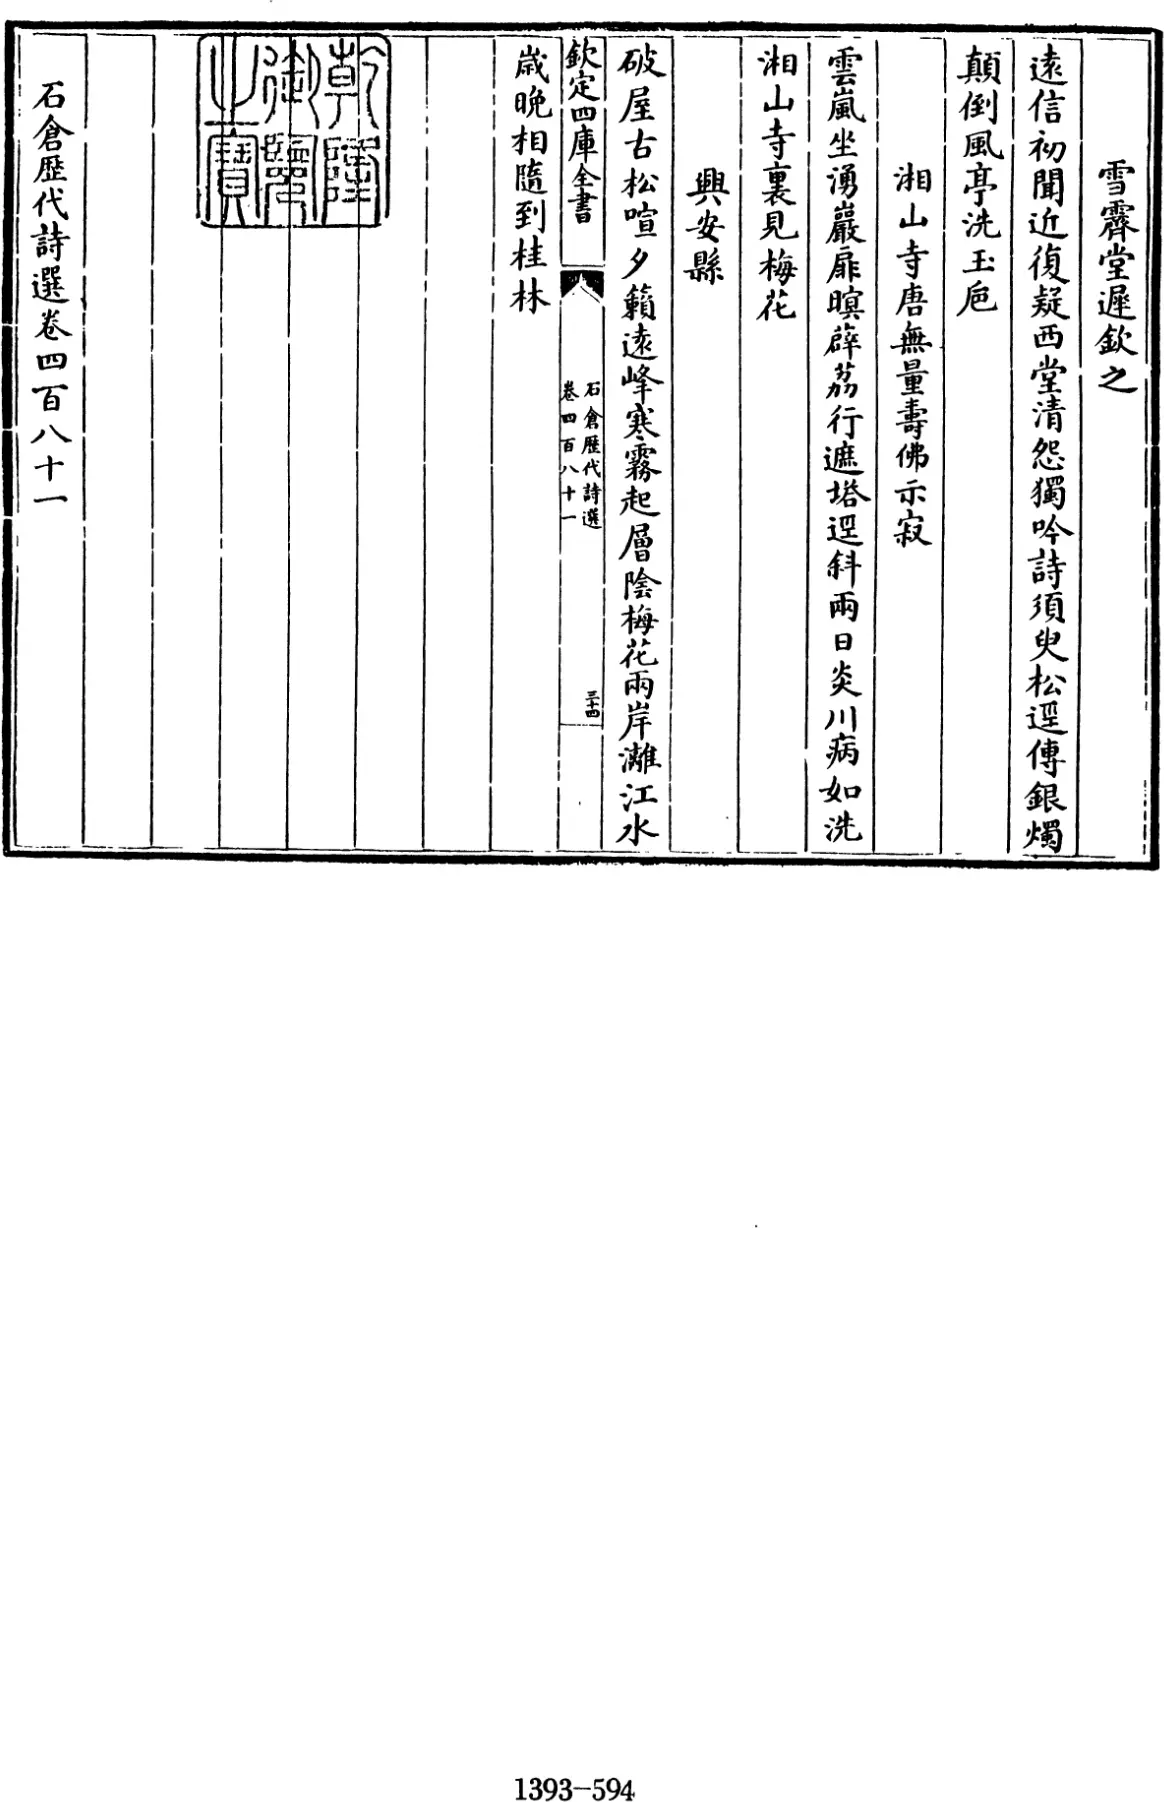 雪霽堂遲欽之
遠信初聞近復疑西堂清怨獨吟詩須臾松逕傳銀燭
顛倒風亭洗玉巵
湘山寺唐無量壽佛示寂
雲嵐坐湧巖扉暝薜荔行遮塔逕斜兩日炎川病如洗
湘山寺裏見梅花
興安縣
破屋古松喧夕籟遠峰寒霧起層陰梅花兩岸灕江水
欽定四庫全書
石倉歷代詩選
卷四百八十一
三十四
歲晚相隨到桂林
乾隆
御覽
之寶
石倉歷代詩選卷四百八十一
1393-594